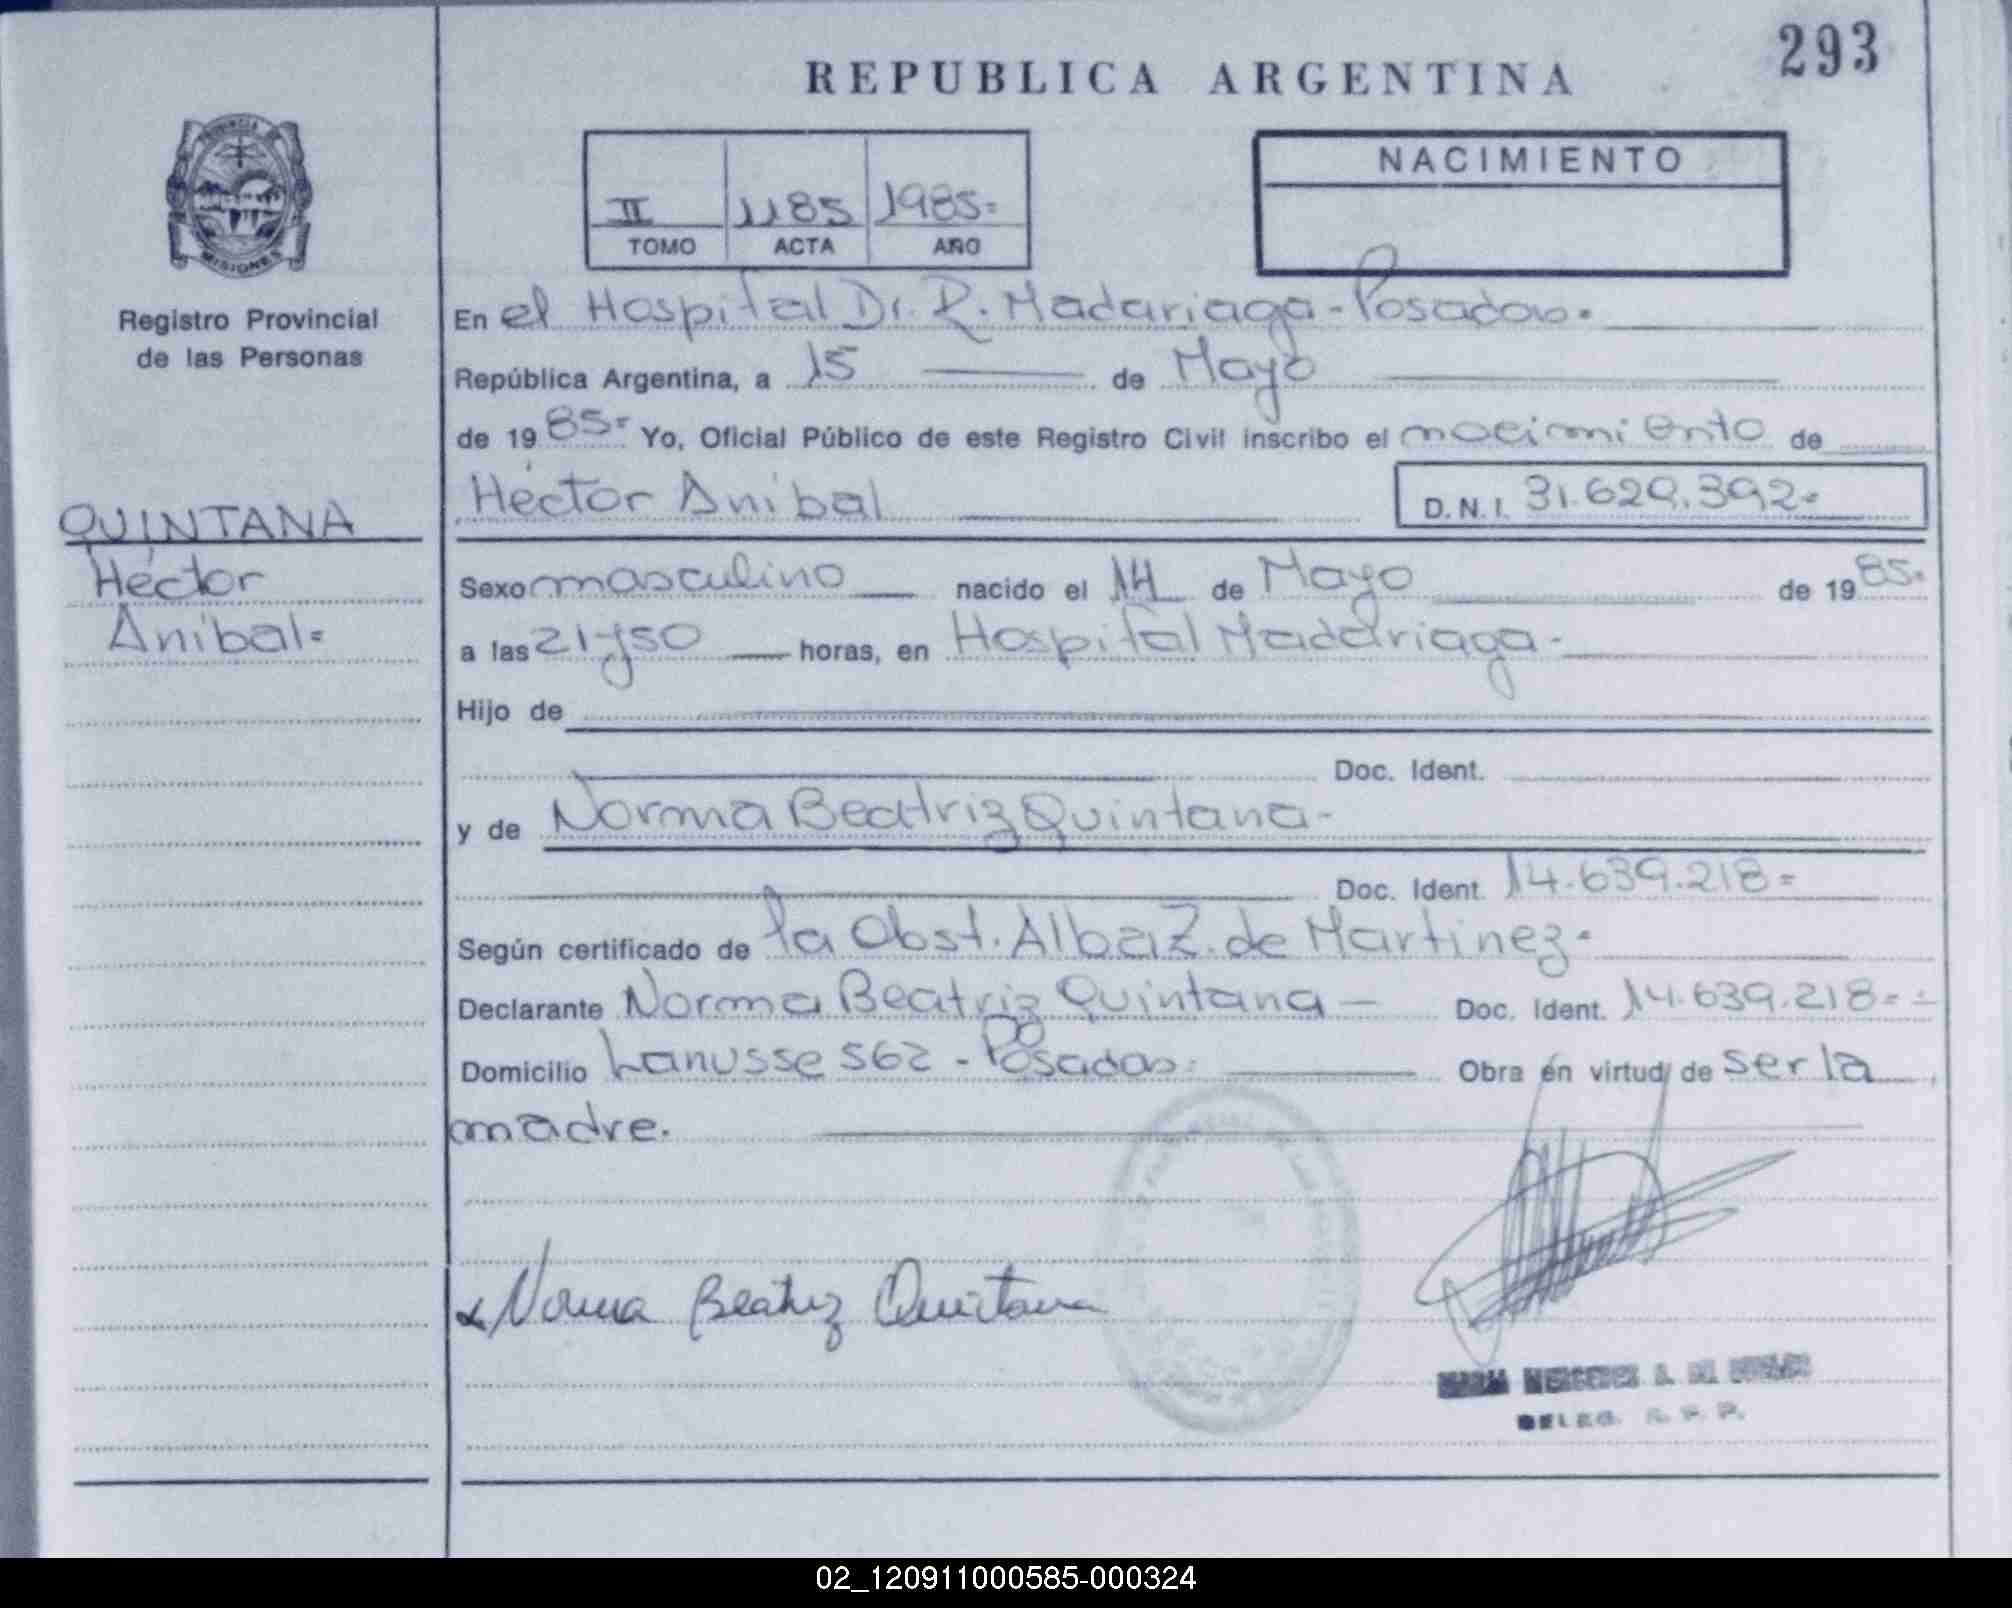 293
REPUBLICA ARGENTINA
II 1185 1985=
TOMO ACTA AÑO
NACIMIENTO
MISIONES
Registro Provincial
de las Personas
En el Hospital Dr. R. Madariaga - Posadas.
República Argentina, a 15 de Mayo
de 1985= Yo, Oficial Público de este Registro Civil inscribo el nacimiento de
Héctor Anibal D.N.I. 31.629.392=
QUINTANA
Héctor
Anibal=
Sexo masculino nacido el 14 de Mayo de 1985.
a las 21 y 50 horas, en Hospital Madariaga-
Hijo de
Doc. Ident.
y de Norma Beatriz Quintana-
Doc. Ident. 14.639.218=
Según certificado de la Obst. Alba Z. de Martinez.
Declarante Norma Beatriz Quintana - Doc. Ident. 14.639.218=
Domicilio Lanusse 562 - Posadas. Obra en virtud de ser la
madre.
Norma Beatriz Quintana
DELEG. R. P. P.
02_120911000585-000324